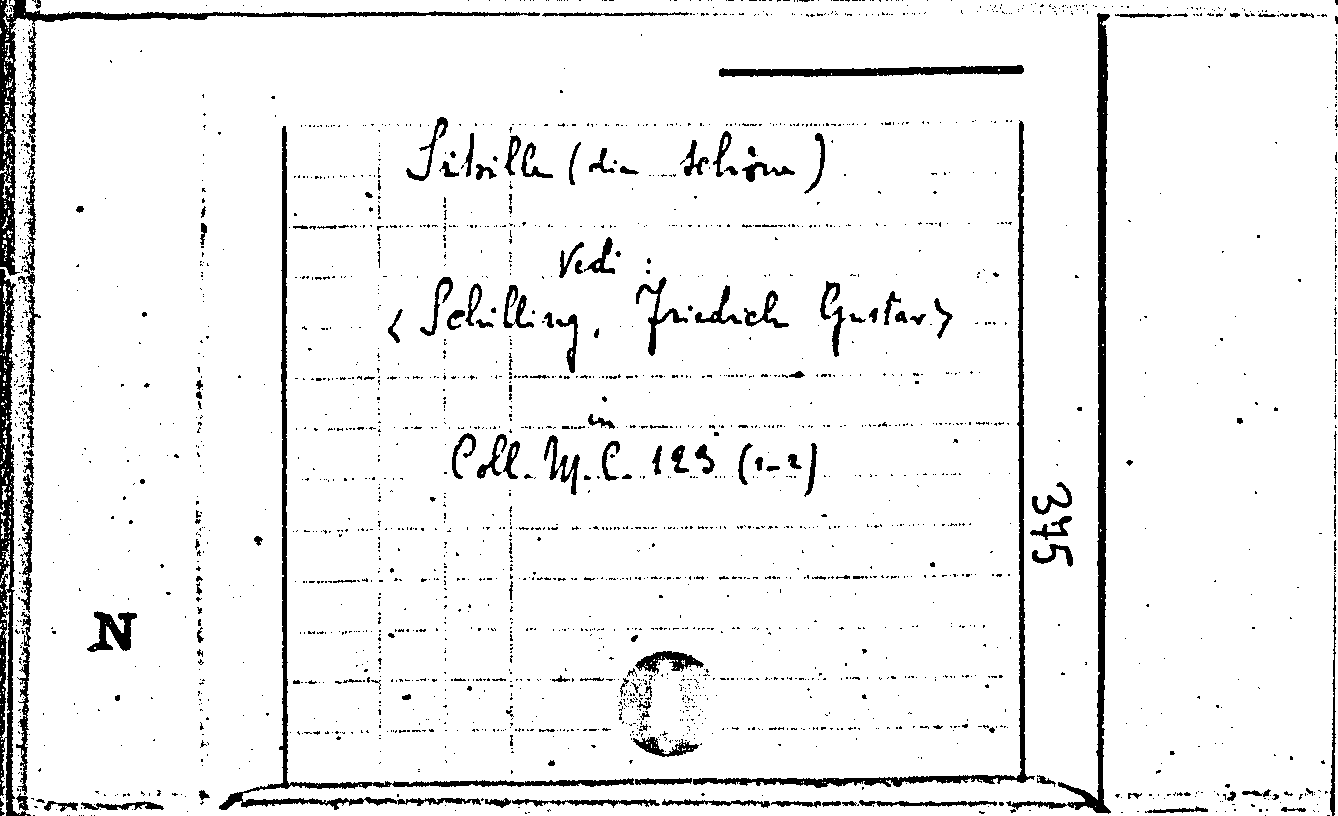 Sibille (die schöne)
Vedi :
< Schilling, Friedrich Gustav>
in
Coll. M. C. 123 (1-2)
375
N